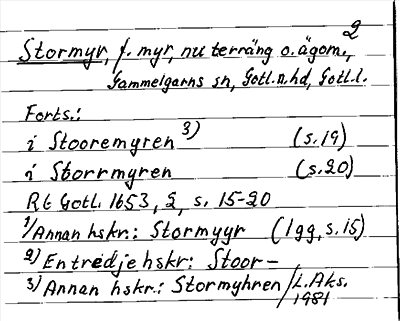 2
Stormyr, f. myr, nu terräng o. ägom.,
Gammelgarns sn, Gotl. n. hd, Gotl. l.
Forts.:
i Stooremyren 3) (s. 19)
i Storrmyren (s. 20)
RG Gotl. 1653, 2, s. 15-20
1) Annan hskr: Stormyyr (1gg, s. 15)
2) En tredje hskr: Stoor-
3) Annan hskr.: Stormyhren / L. Aks.
1981